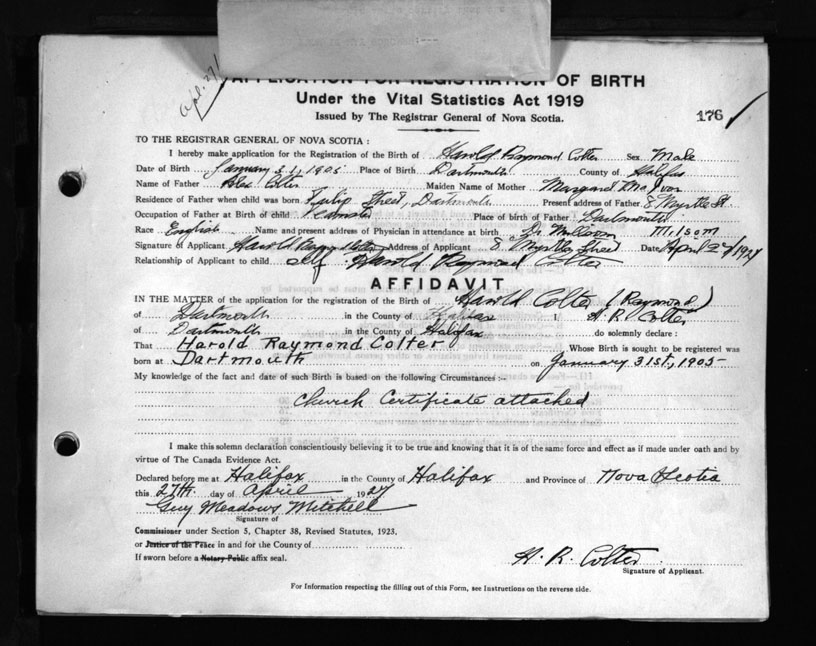 Apl. 27/
APPLICATION FOR REGISTRATION OF BIRTH
Under the Vital Statistics Act 1919
Issued by The Registrar General of Nova Scotia.
176
TO THE REGISTRAR GENERAL OF NOVA SCOTIA:
I hereby make application for the Registration of the Birth of Harold Raymond Colter Sex Male
Date of Birth January 31, 1905 Place of Birth Dartmouth County of Halifax
Name of Father Alex Colter Maiden Name of Mother Margaret McIvor
Residence of Father when child was born Tulip Street, Dartmouth Present address of Father 8 Myrtle St.
Occupation of Father at Birth of child Teamster Place of birth of Father Dartmouth
Race English Name and present address of Physician in attendance at birth Dr. Milsom
Signature of Applicant Harold Raymond Colter Address of Applicant 8 Myrtle Street Date April 27/1927
Relationship of Applicant to child Self Harold Raymond Colter
AFFIDAVIT
IN THE MATTER of the application for the registration of the Birth of Harold Colter (Raymond)
of Dartmouth in the County of Halifax I, H. R. Colter
of Dartmouth in the County of Halifax do solemnly declare:
That Harold Raymond Colter Whose Birth is sought to be registered was
born at Dartmouth on January 31st, 1905
My knowledge of the fact and date of such Birth is based on the following Circumstances:—
Church Certificate attached
I make this solemn declaration conscientiously believing it to be true and knowing that it is of the same force and effect as if made under oath and by
virtue of The Canada Evidence Act.
Declared before me at Halifax in the County of Halifax and Province of Nova Scotia
this 27th day of April 1927
Guy Meadows Mitchell
Signature of
Commissioner under Section 5, Chapter 38, Revised Statutes, 1923,
or Justice of the Peace in and for the County of
If sworn before a Notary Public affix seal.
H. R. Colter
Signature of Applicant.
For Information respecting the filling out of this Form, see Instructions on the reverse side.